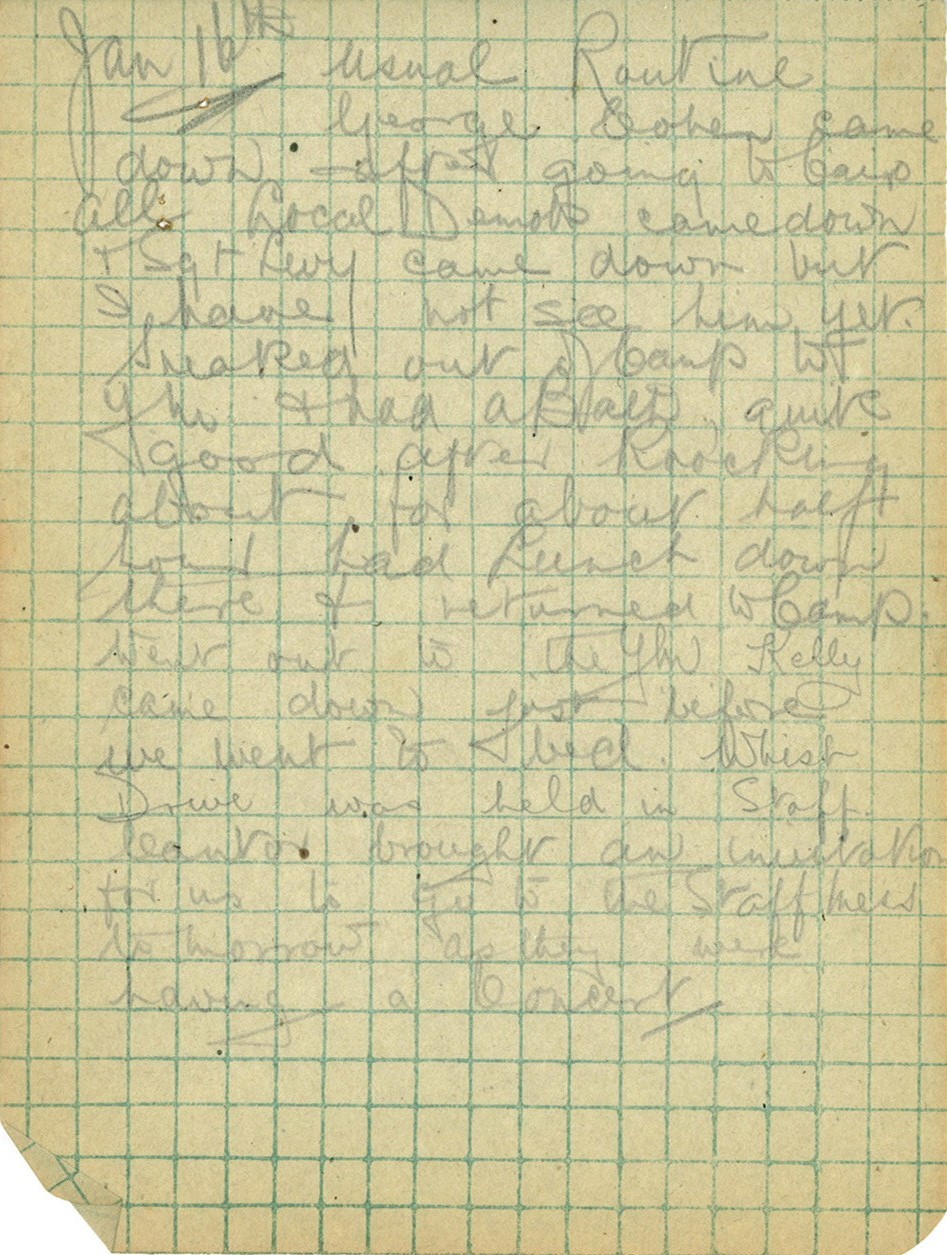 Jan 16th usual Routine
George Cohen came
down after going to Camp
all Local Demob came down
& Sgt Levy came down but
I have not see him yet.
Sneaked out of Camp to
& had a Bath, quite
good after Knocking
about for about half
hour had Lunch down
there & returned to Camp.
Went out to the Kelly
came down just before
we went to bed. Whist
Drive was held in Staff.
brought an invitation
for us to go to the Staff Mess
to morrow as they were
having a Concert